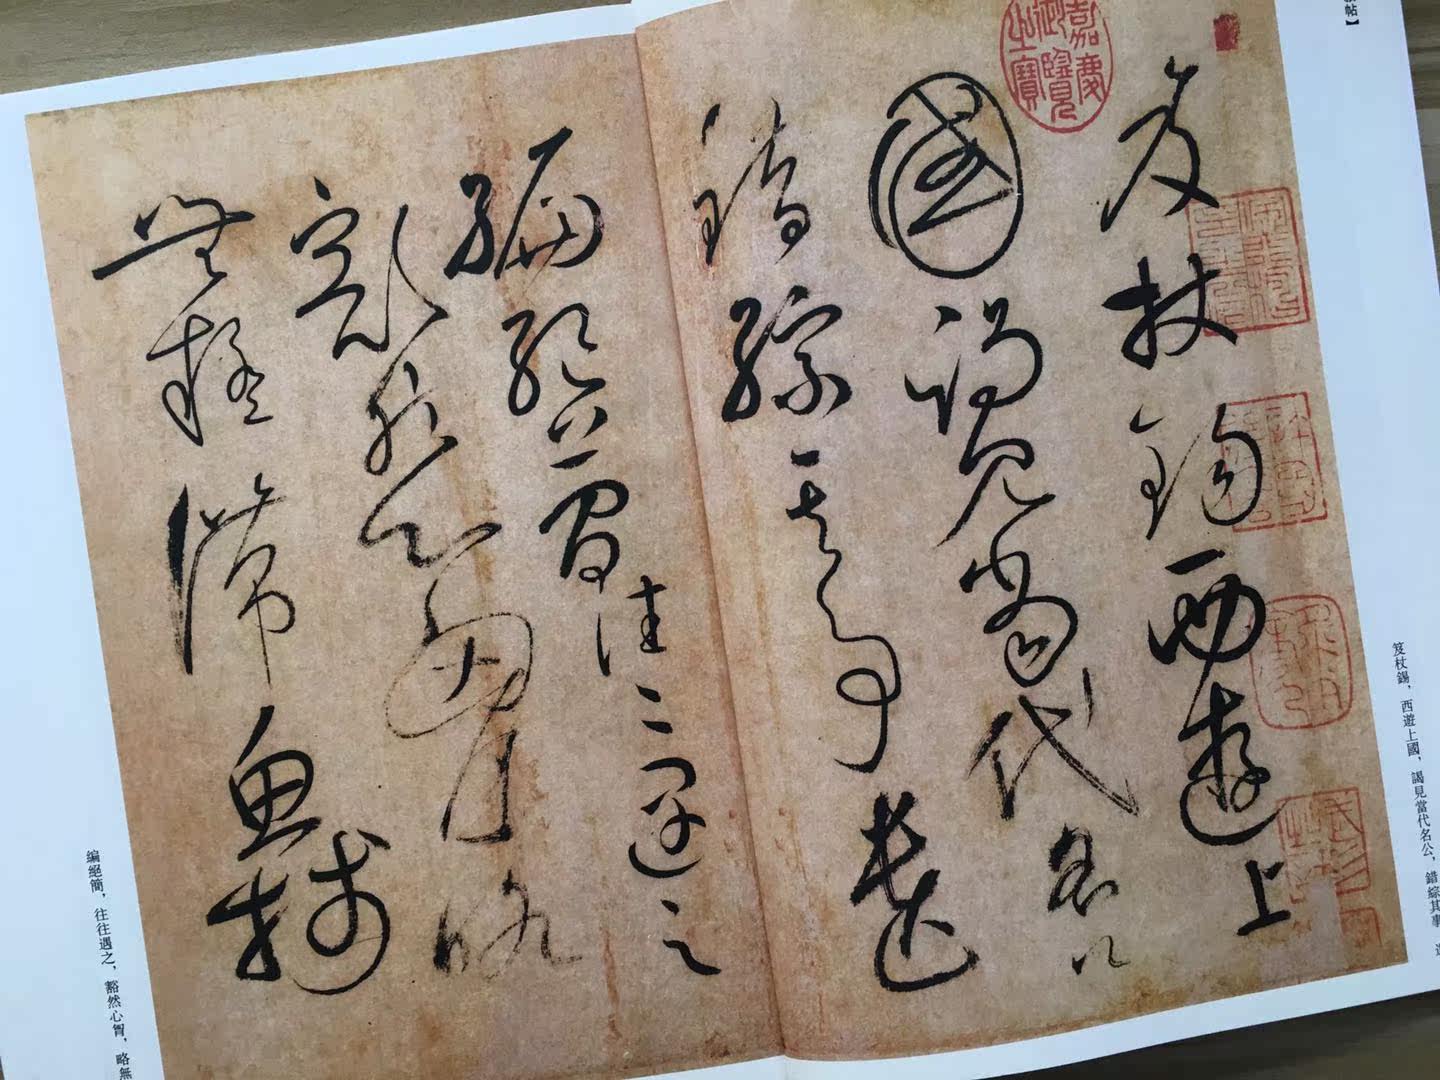 帖】
嘉慶御覽之寶
笈杖錫西遊上
國謁見當代名公
錯綜其事遺
編絕簡往往遇之
豁然心胸略
無疑滯魚牋
笈杖錫，西遊上國，謁見當代名公，錯綜其事
編絕簡，往往遇之，豁然心胷，略無